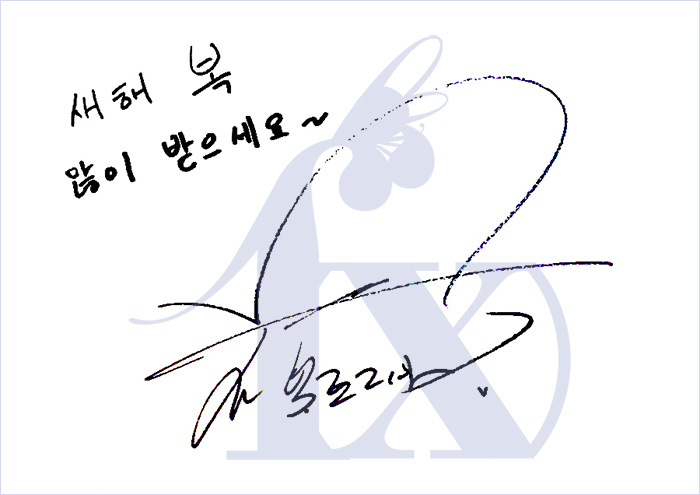 새해 복
많이 받으세요~
fx